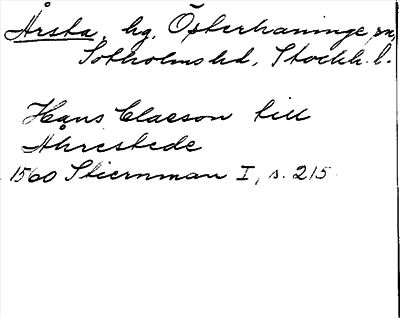 Årsta, hg, Österhaninge sn,
Sotholms hd, Stockh. l.
Hans Claeson till
Åhrestede
1560 Stiernman I, s. 215